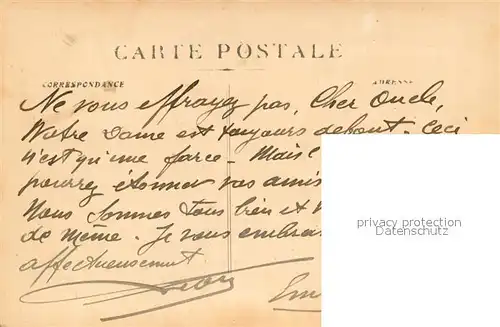 CARTE POSTALE
CORRESPONDANCE
ADRESSE
Ne vous effrayez pas, Cher Oncle,
Notre Dame est toujours debout. Ceci
n'est qu'une farce - Mais
pourrez étonner vos amis
Nous sommes tous bien et
de même. Je vous embras
affectueusement
privacy protection